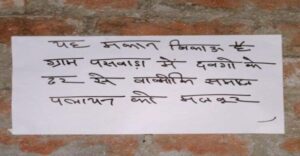 यह मकान बिकाऊ है
ग्राम पसवाड़ा में दबंगों के
डर से वाल्मीकि समाज
पलायन को मजबूर